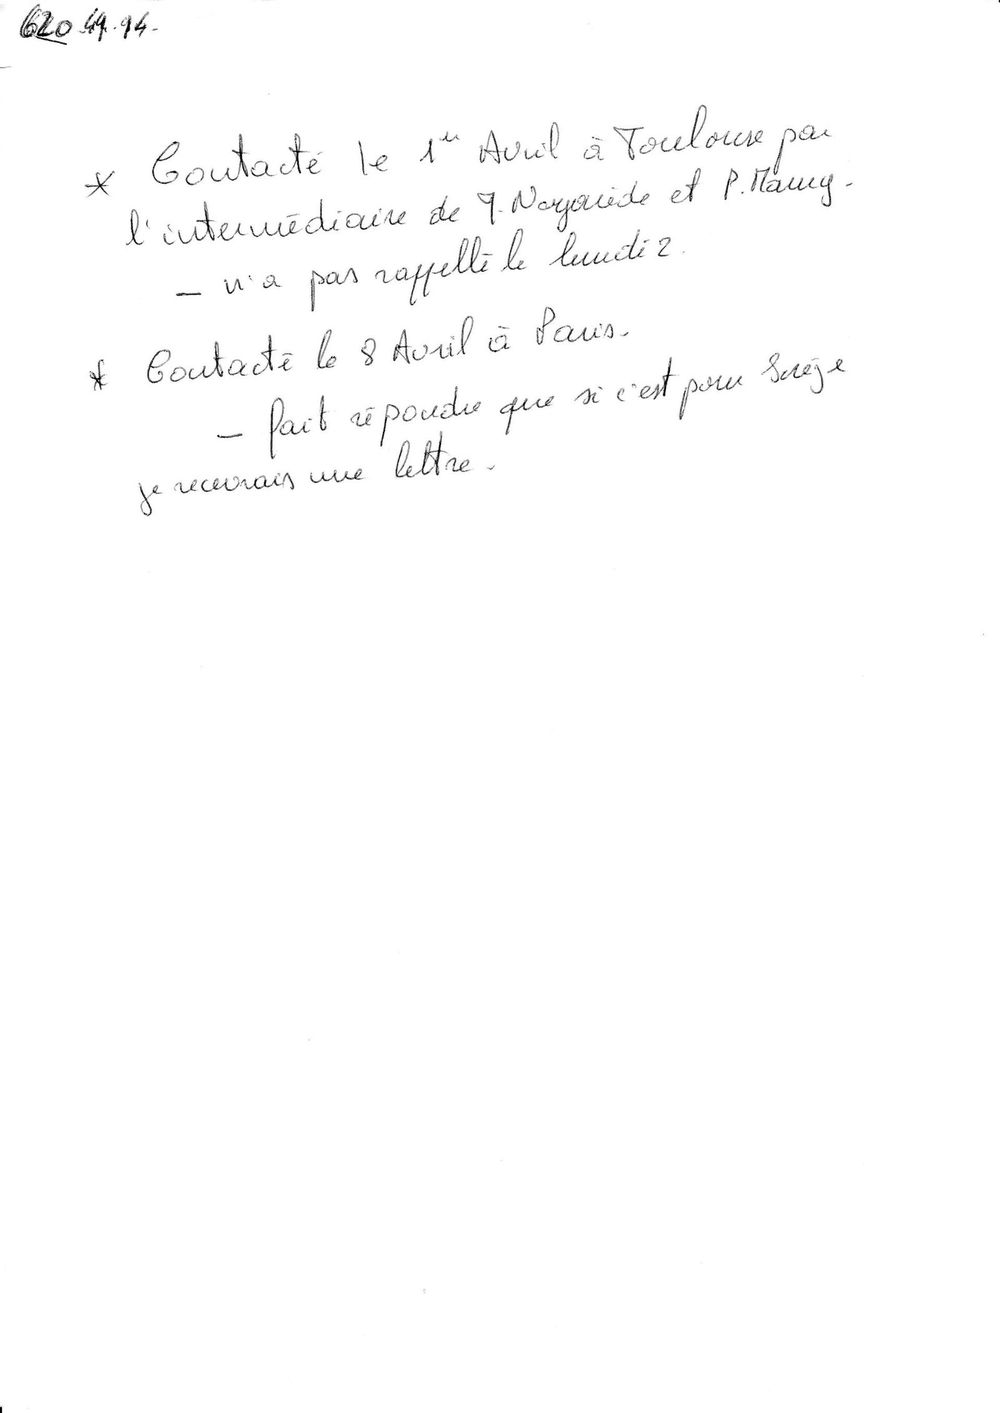 620.49.94-
* Contacté le 1er Avril à Toulouse par
l'intermédiaire de J. Nayariède et P. Mamy.
- n'a pas rappellé le lundi 2.
* Contacté le 8 Avril à Paris.
- fait répondre que si c'est pour Sorèze
je recevrais une lettre.